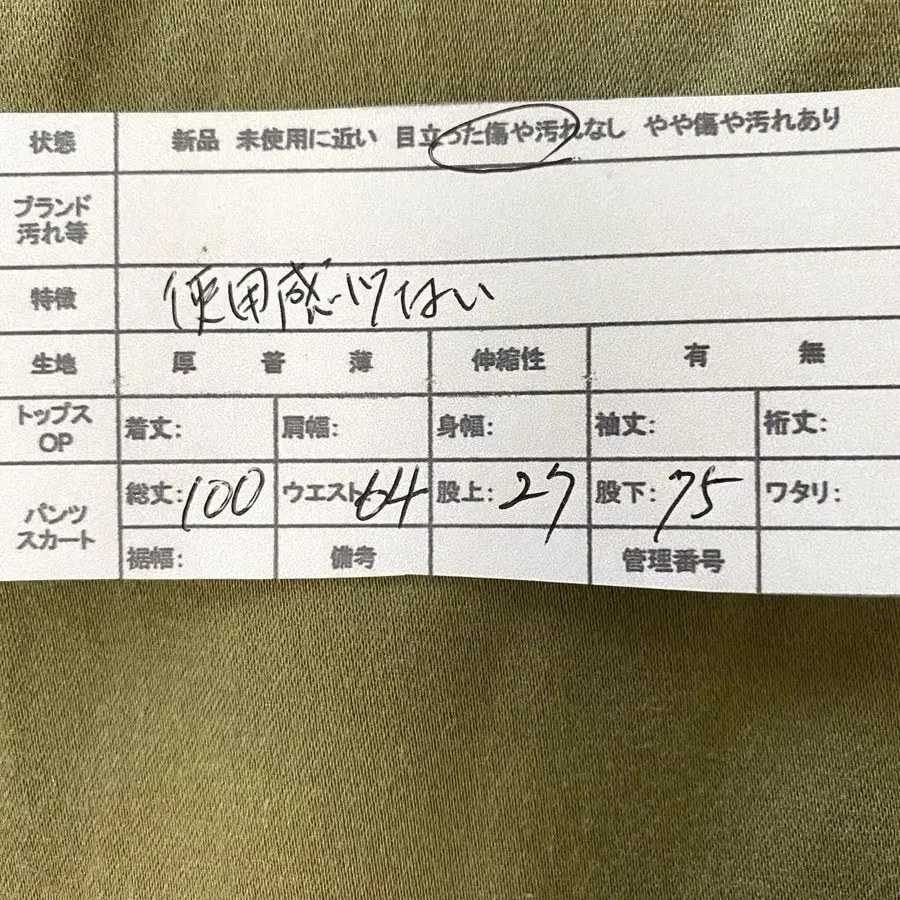 状態 新品 未使用に近い 目立った傷や汚れなし やや傷や汚れあり
ブランド
汚れ等
特徴 使用感少ない
生地 厚 普 薄 伸縮性 有 無
トップス
OP
着丈: 肩幅: 身幅: 袖丈: 裄丈:
パンツ
スカート
総丈:100 ウエスト64 股上:27 股下:75 ワタリ:
裾幅: 備考 管理番号